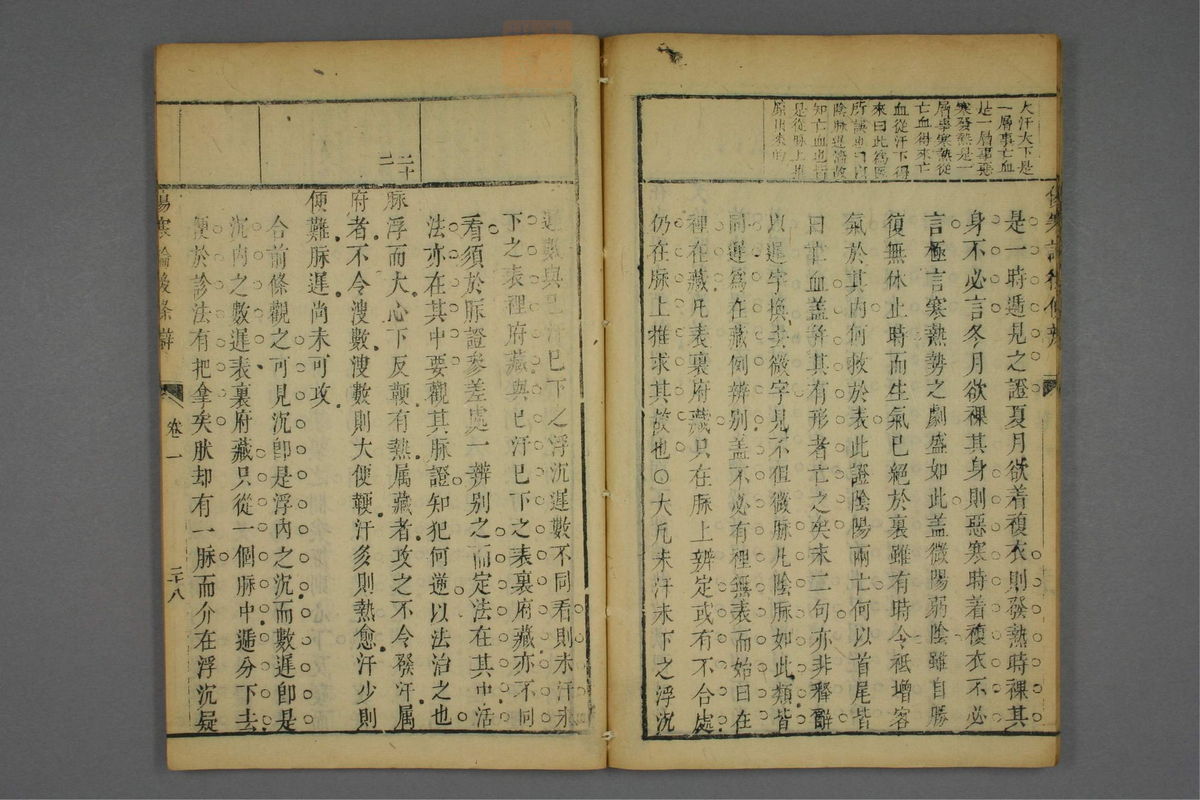 大汗大下是
一層事亡血
是一層事惡
寒發熱是一
層事寒熱從
亡血得來亡
血從汗下得
來曰此爲醫
所
陰脉遲濇故
知亡血也
是從脉上推
原出來的
是一時遞見之證夏月欲着複衣則發熱時裸其
身不必言冬月欲裸其身則惡寒時着複衣不必
言極言寒熱勢之劇盛如此蓋微陽弱陰雖自勝
復無休止時而生氣已絕於裏雖有時令祗增客
氣於其內何救於表此證陰陽兩亡何以首尾皆
曰亡血蓋舉其有形者亡之矣末二句亦非釋辭
以遲字換去微字見不徂微脉凡陰脉如此類皆
同遲爲在藏例辨别蓋不必有裡無表而始曰在
裡在藏凡表裏府藏只在脉上辨定或有不合處
仍在脉上推求其故也○大凡未汗未下之浮沉
遲數與已汗已下之浮沉遲數不同看則未汗未
下之表裡府藏與已汗已下之表裏府藏亦不同
看須於脉證參差處一辨别之而定法在其中活
法亦在其中要觀其脉證知犯何逆以法治之也
二十二
脉浮而大心下反鞕有熱属藏者攻之不令發汗属
府者不令溲數溲數則大便鞕汗多則熱愈汗少則
便難脉遲尚未可攻
合前條觀之可見沉卽是浮內之沉而數遲卽是
沉內之數遲表裏府藏只從一個脉中遞分下去
便於診法有把拿矣肰却有一脉而介在浮沉疑
傷寒論後条辯
卷一
二十八